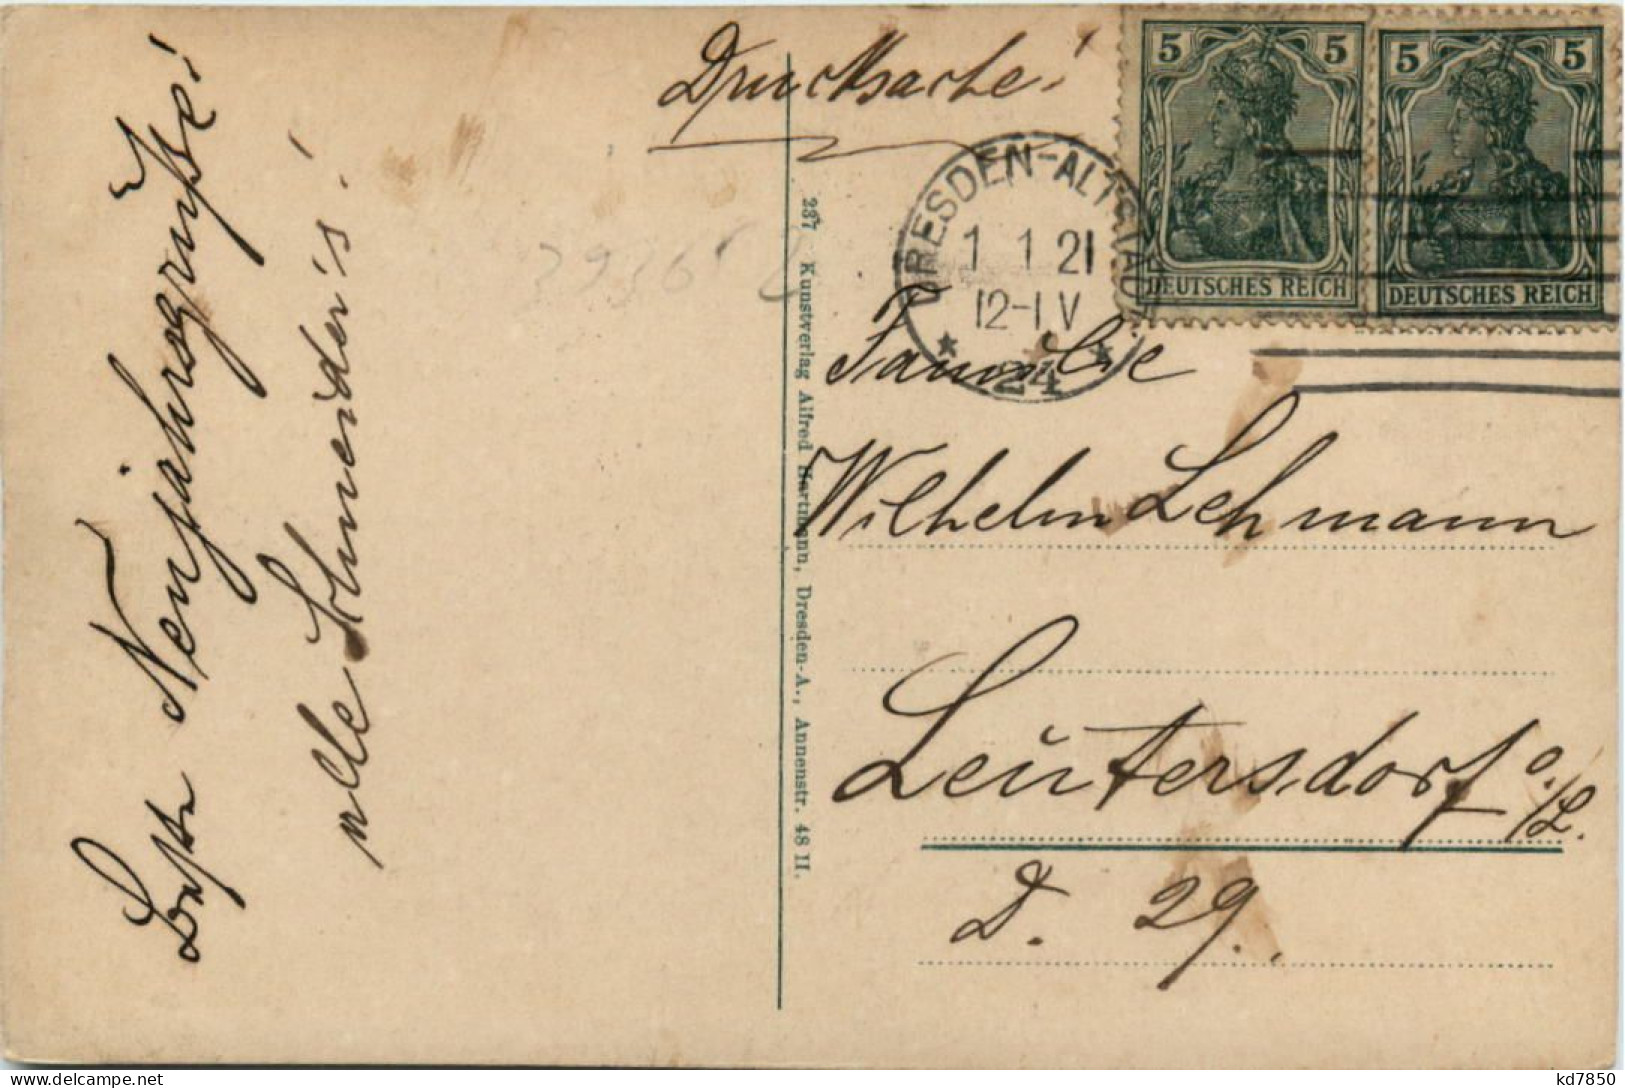 Beste Neujahrsgrüße!
alle Schneider's!
Drucksache!
5 5
DEUTSCHES REICH
5 5
DEUTSCHES REICH
DRESDEN-ALTSTADT
1 1 21
12-1 V
* 24 *
Familie
Wilhelm Lehmann
Leutersdorf o./L.
D. 29.
237 Kunstverlag Alfred Hartmann, Dresden-A., Annenstr. 48 II.
3936
kd7850